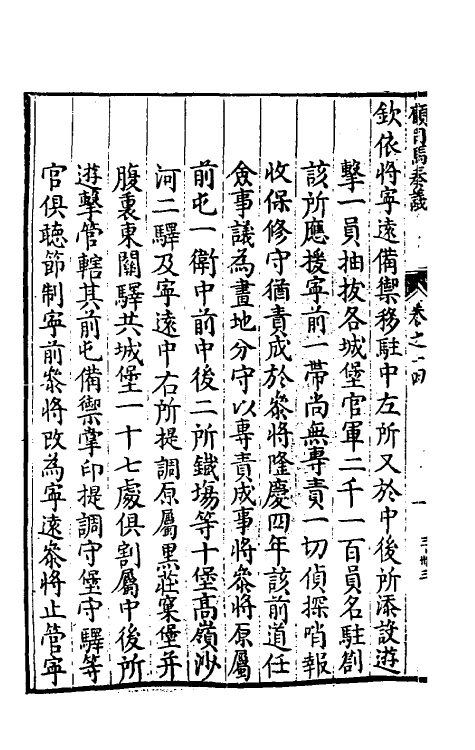 顧司馬奏議
卷之一四
欽依將寧遠備禦移駐中左所又於中後所添設遊
擊一員抽拔各城堡官軍二千一百員名駐劄
該所應援寧前一帶尚無專責一切偵探哨報
收保修守猶責成於叅將隆慶四年該前道任
僉事議為畫地分守以專責成事將叅將原屬
前屯一衛中前中後二所鐵塲等十堡高嶺沙
河二驛及寧遠中右所提調原屬黑莊窠堡并
腹裏東關驛共城堡一十七處俱割屬中後所
遊擊管轄其前屯備禦掌印提調守堡守驛等
官俱聽節制寧前叅將改為寧遠叅將止管寧